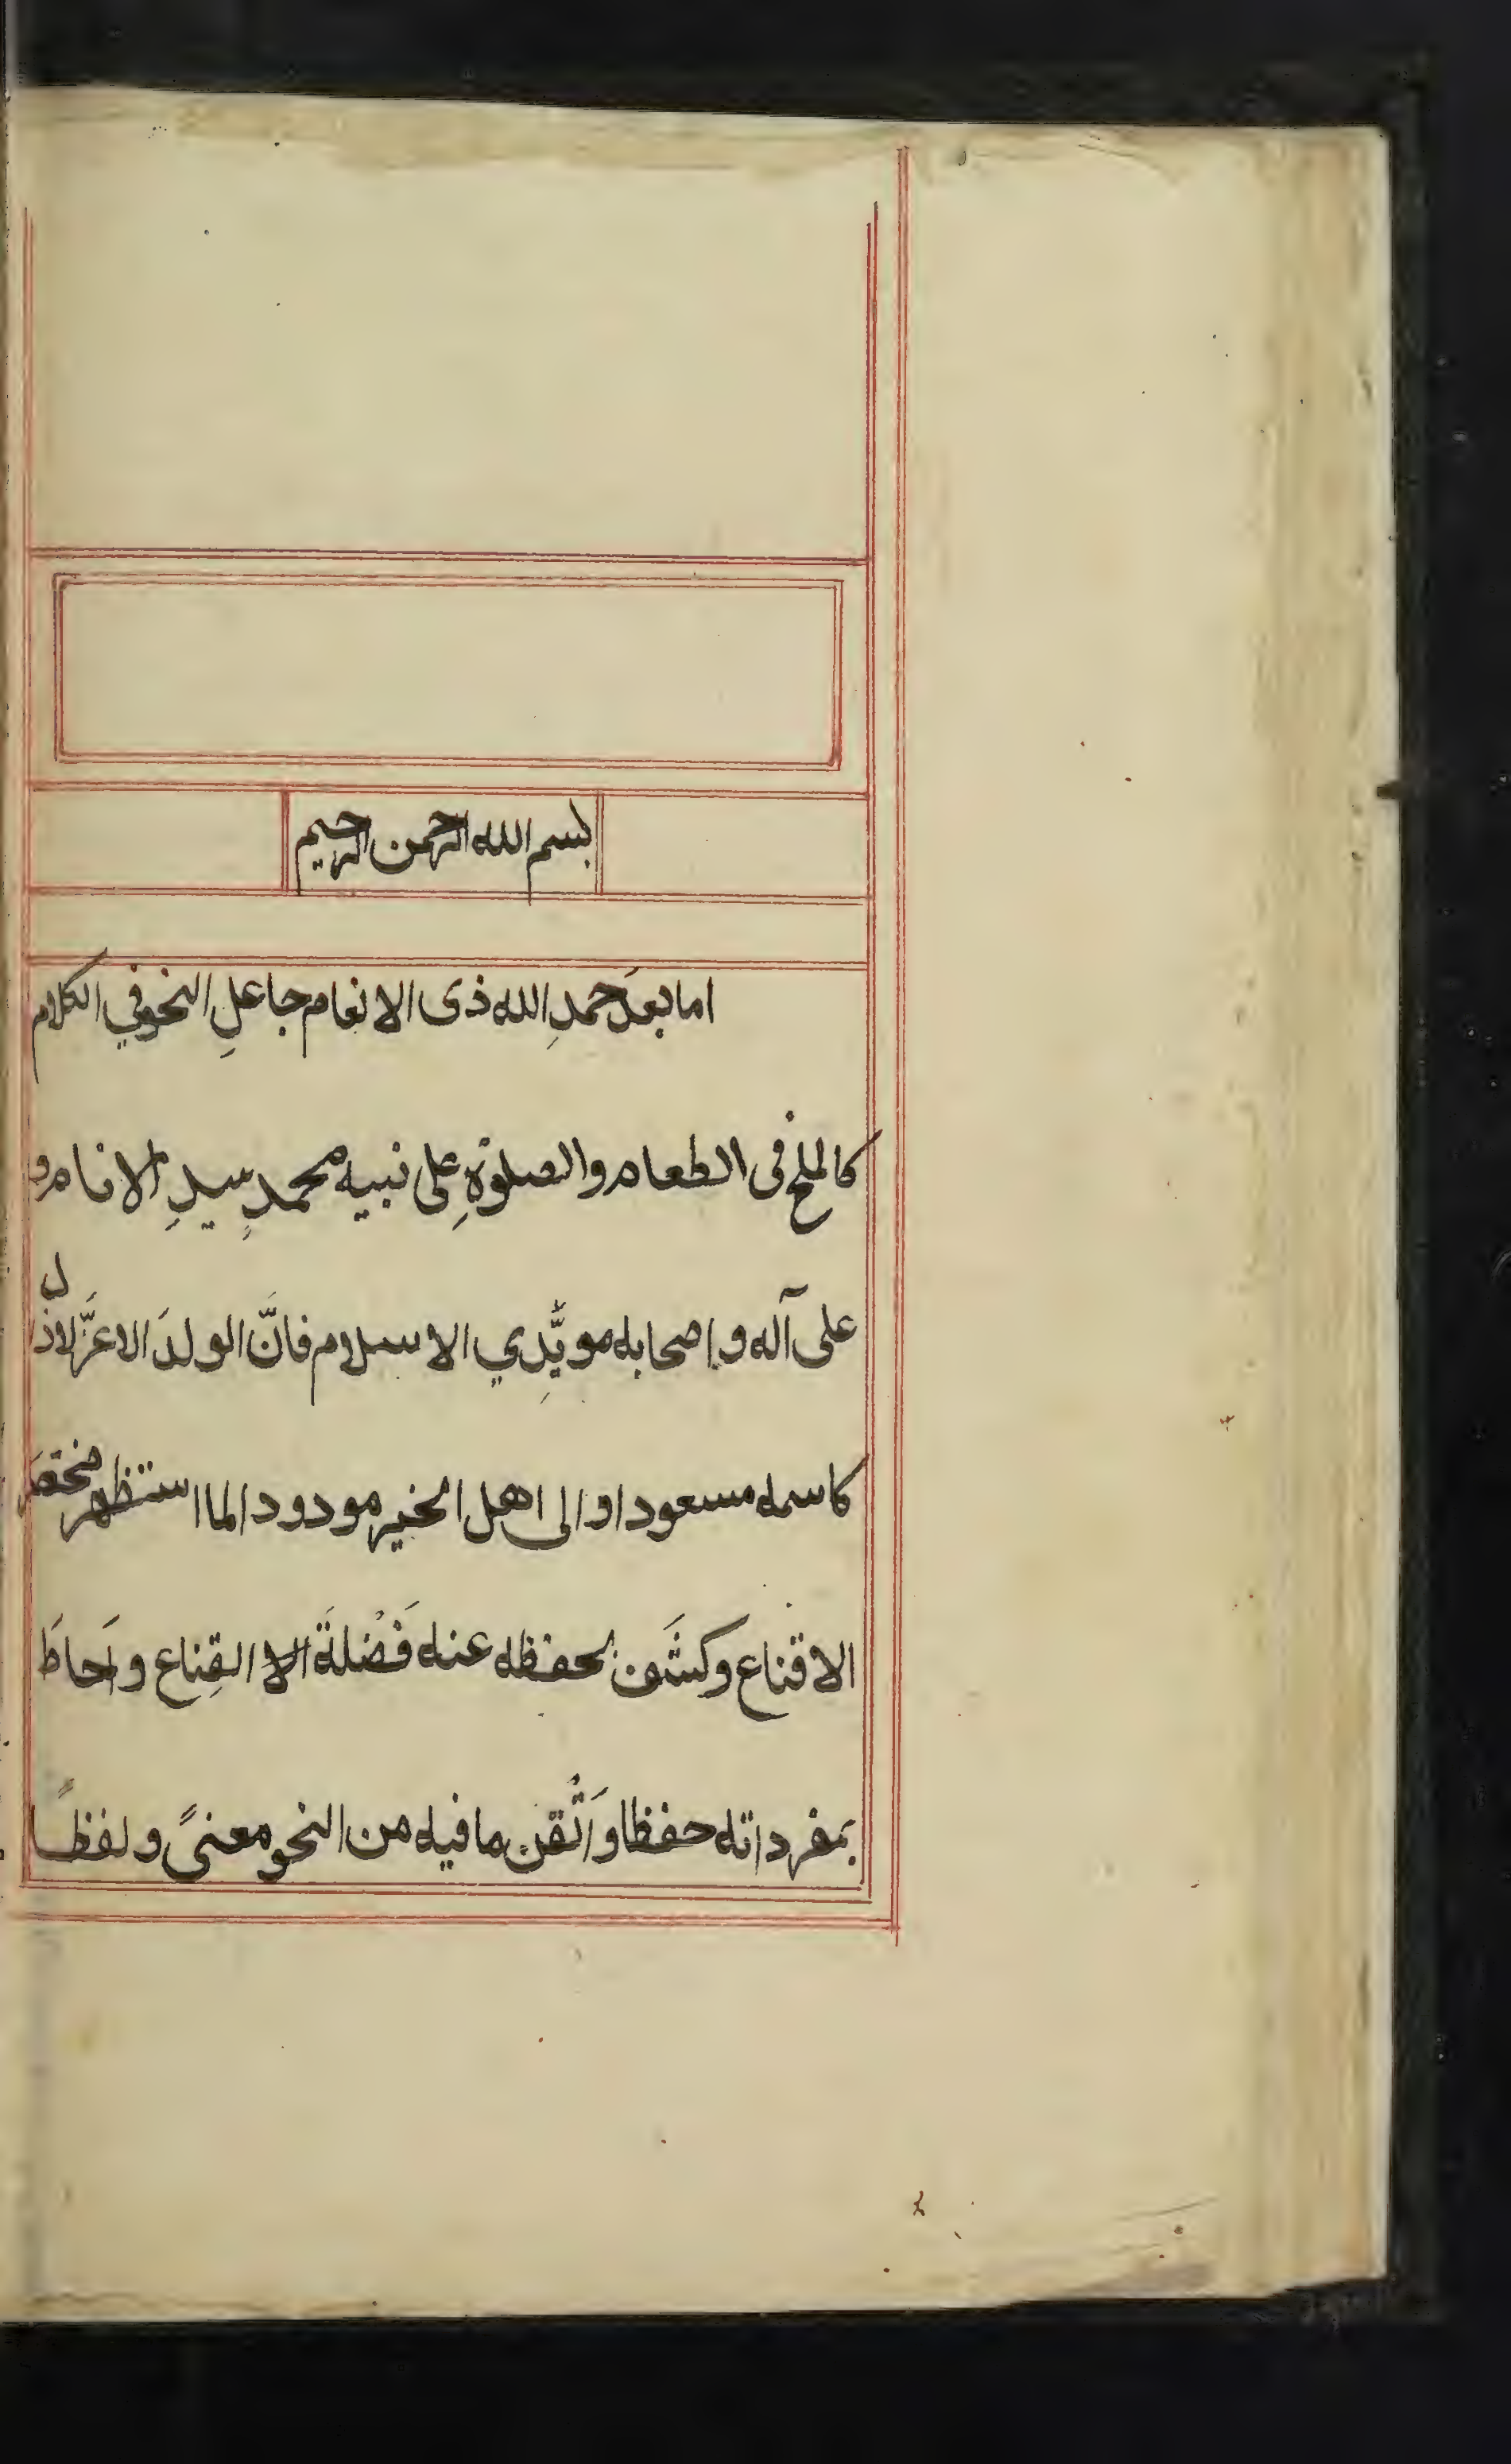 بسم الله الرحمن الرحيم
اما بعدَ حمدِ الله ذى الانعام جاعلِ النحو في الكلام
كالملح فى الطعام والصلوٰةِ على نبيه محمدٍ سيدِ الانام و
على آله واصحابه مويِّدي الاسلام فانّ الولدَ الاعزَّ لازال
كاسمه مسعودا والى اهل الخير مودودا لما استظهر مختصَر
الاقناع وكشَف بحفظه عنه فَضْلةَ القِناع واَحاطَ
بمفرداته حفظا واَتْقن ما فيه من النحو معنىً ولفظاً